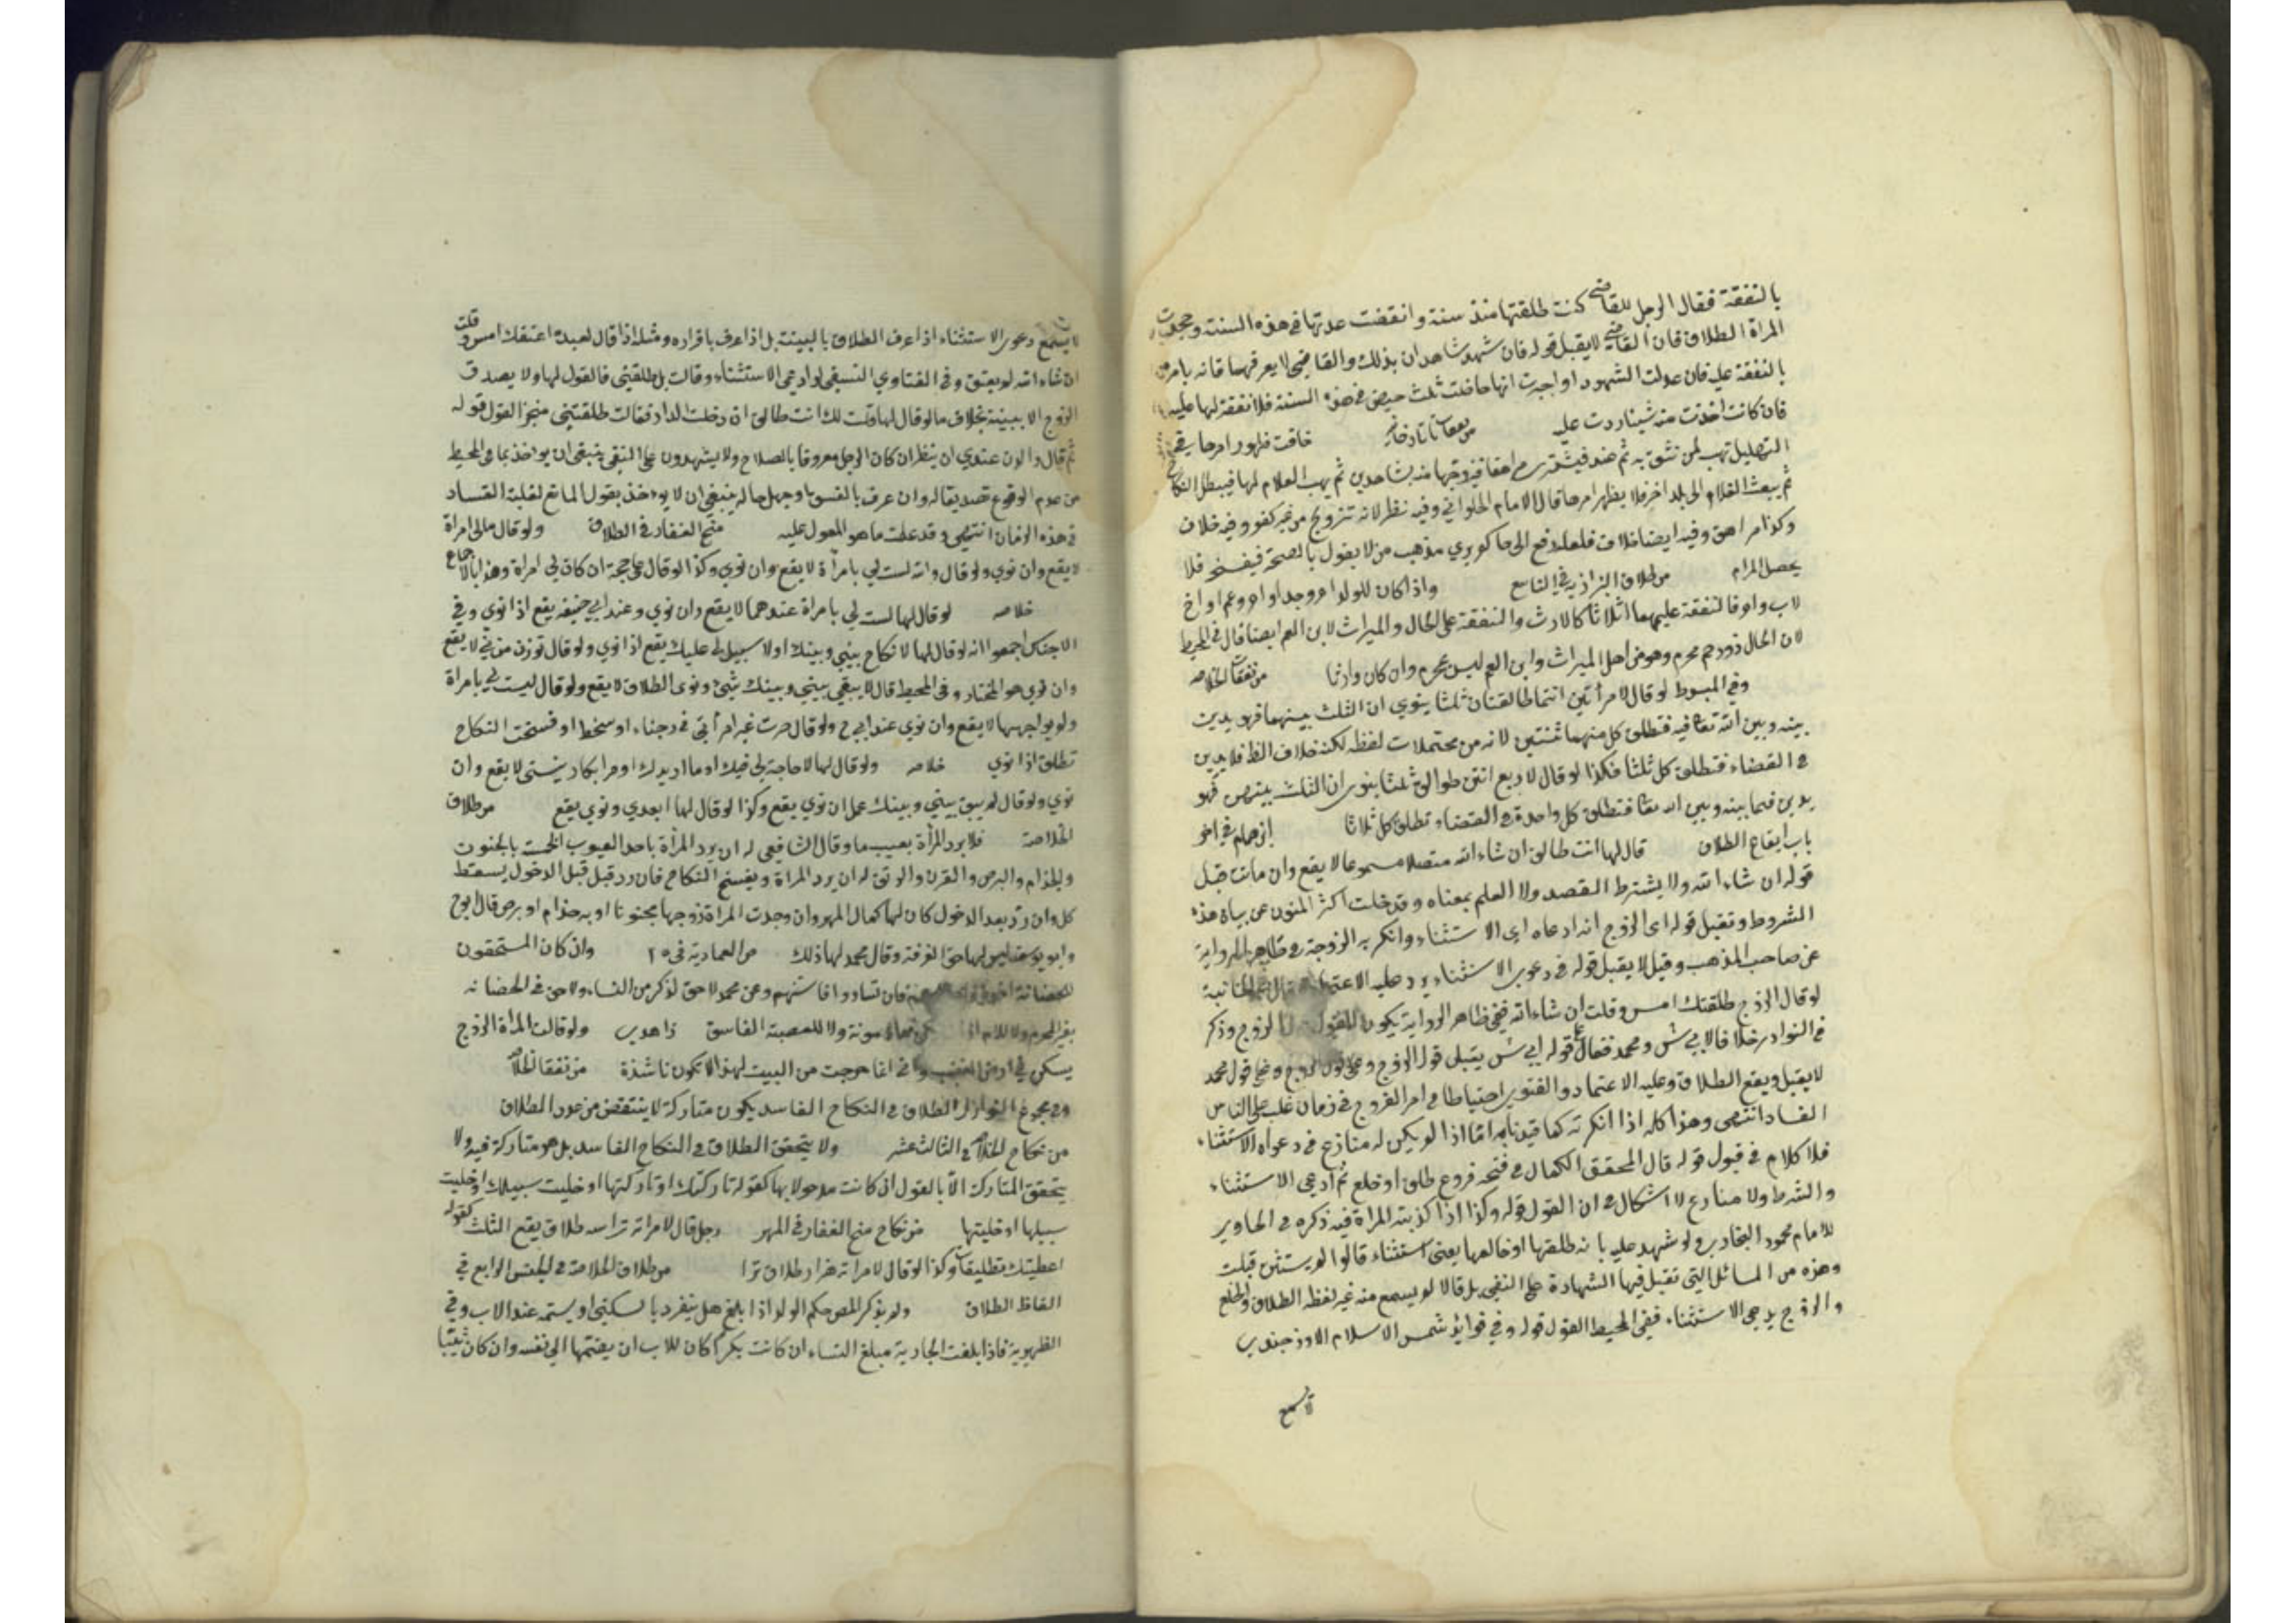 بالنفقة فقال الرجل للقاضي كنت طلقتها منذ سنة وانقضت عدتها في هذه السنة وجحدت
المرأة الطلاق فان القاضي لا يقبل قوله فان شهد شاهدان بذلك والقاضي لا يعرفهما فانه يامره
بالنفقة عليه فان عدلت الشهود او اجرت انها حاضت ثلث حيض في هذه السنة فلا نفقة لها عليه
فان كانت اخذت منه شيئا ردت عليه من نفقات تاتارخانيه خافت ظهور امرها في
التحليل تهب لمن تثق به ثم عبد فيشتري مراهقا فيزوجها منه بشاهدين ثم يهب الغلام لها فيبطل النكاح
ثم يبعث الغلام الى بلد اخر فلا يظهر امرها قال الامام الحلواني وفيه نظر لانه تزويج من غير كفو وفيه خلاف
وكذا مراهق وفيه ايضا خلاف فلعله يرفع الى حاكم يري مذهب من لا يقول بالصحة فيفسخ فلا
يحصل المرام من طلاق البزازيه في التاسع واذا كان للولد ام وجد او ام وعم او اخ
لاب وام فالنفقة عليهما اثلاثا كالارث والنفقة على الخال والميراث لابن العم ايضا قال في المحيط
لان الخال ذو رحم محرم وهو من اهل الميراث وابن العم ليس بمحرم وان كان وارثا من نفقات الخلاصه
وفي المبسوط لو قال لامرأتين انتما طالقتان ثلثا ينوي ان الثلث بينهما فهو يدين
بينه وبين الله تعا فيه فتطلق كل منهما ثنتين لانه من محتملات لفظه لكنه خلاف الظ فلا يدين
في القضاء فتطلق كل ثلثا فكذا لو قال لاربع انتن طوالق ثلثا ينوى ان الثلث بينهن فهو
يدين فيما بينه وبين الله تعا فتطلق كل واحدة وفي القضاء تطلق كل ثلاثا ابن همام في اخر
باب ايقاع الطلاق قال لها انت طالق ان شاء الله متصلا مسموعا لا يقع وان ماتت قبل
قوله ان شاء الله ولا يشترط القصد ولا العلم بمعناه وقد خلت اكثر المتون عن بيان هذه
الشروط وتقبل قوله اى الزوج انه ادعاه اى الاستثناء وانكرته الزوجة في ظاهر الرواية
عن صاحب المذهب وقيل لا يقبل قوله في دعوى الاستثناء وعليه الاعتماد قال في الخانية
لو قال الزوج طلقتك امس وقلت ان شاء الله ففي ظاهر الرواية يكون القول للزوج وذكر
في النوادر خلافا لابي س ومحمد فقال على قول ابي س يقبل قول الزوج وعلى قول محمد
لا يقبل ويقع الطلاق وعليه الاعتماد والفتوى احتياطا في امر الفروج في زمان غلب على الناس
الفساد انتهى وهذا كله اذا انكرته كما قيدنا به اما اذا لم يكن له منازع في دعواه الاستثناء
فلا كلام في قبول قوله قال المحقق الكمال في فتحه فروع طلق او خلع ثم ادعى الاستثناء
والشرط ولا منازع لا اشكال في ان القول قوله وكذا اذا كذبته المرأة فيه ذكره في الحاوي
للامام محمود البخاري ولو شهد عليه بانه طلقها او خالعها يعنى استثناء قالوا لم يستثن قبلت
وهذه من المسائل التي تقبل فيها الشهادة على النفى بل قالا لو يسمع منه غير لفظه الطلاق والخلع
والزوج يدعي الاستثناء ففي المحيط القول قوله وفي فوايد شمس الاسلام الاوزجندي
لا يسمع
لا يسمع دعوى الاستثناء اذا عرف الطلاق بالبينة بل اذا عرف باقراره ومثله اذا قال لعبده اعتقتك امس وقلت
ان شاء الله لم يعتق وفي الفتاوي النسفي لو ادعي الاستثناء وقالت بل طلقتني فالقول لها ولا يصدق
الزوج الا ببينة بخلاف ما لو قال لها قلت لك انت طالق ان دخلت الدار فقالت طلقتني منجزا القول قوله
ثم قال والون عندي ان ينظر ان كان الرجل معروفا بالصلاح ولا يشهدون على النفى ينبغى ان يواخذ بما في المحيط
من عدم الوقوع تصديقا له وان عرف بالفسق او جهل حاله ينبغي ان لا يوخذ بقول المانع لغلبة الفساد
في هذه الزمان انتهى وقد علمت ما هو المعول عليه منح الغفار في الطلاق ولو قال مالي امرأة
لا يقع وان نوي ولو قال والله لست لي بامرأة لا يقع وان نوي وكذا لو قال علي حجة ان كان لي امراة وهذا بالاجماع
خلاصه لو قال لها لست لي بامراة عندهما لا يقع وان نوي وعند ابي حنيفه يقع اذا نوي وفي
الاجناس اجمعوا انه لو قال لها لا نكاح بيني وبينك او لا سبيل لي عليك يقع اذا نوي ولو قال توزن من نئ لا يقع
وان نوي هو المختار وفي المحيط قال لا يبقى بيني وبينك شئ ونوى الطلاق لا يقع ولو قال ليست لي بامراة
ولو يواجهها لا يقع وان نوي عند ابي ح ولو قال فسخت النكاح
تطلق اذا نوي خلاصه ولو قال لها لا حاجة لي فيك او ما اريدك او مرا بكار نيستى لا يقع وان
نوي ولو قال لم يبق بيني وبينك عمل ان نوي يقع وكذا لو قال لها ابعدي ونوي يقع من طلاق
الخلاصة فلا يرد المرأة بعيب ما وقال الشافعي له ان يرد المرأة باحد العيوب الخمسة بالجنون
والجذام والبرص والقرن والرتق له ان يرد المراة ويفسخ النكاح فان رد قبل الدخول يسقط
كل وان رد بعد الدخول كان لها كمال المهر وان وجدت المراة زوجها مجنونا او به جذام او برص قال ابو ح
وابو يوسف ليس لها حق الفرقة وقال محمد لها ذلك من العمادية في ٢٥ وان كان المستحقون
للحضانة فان تساووا فاسنهم وعن محمد لا حق لذكر من النساء ولا حق في الحضانه
بغير المحرم ولا للام ولا للعصبة الفاسق زاهدي ولو قالت المرأة الزوج
يسكن في ارض الغصب وانى انما خرجت من البيت لهذا لا تكون ناشزة من نفقات الخلاصه
وفي مجموع النوازل الطلاق في النكاح الفاسد يكون متاركة لا ينتقص من عدد الطلاق
من نكاح الخلاصه في الثالث عشر ولا يتحقق الطلاق في النكاح الفاسد بل هو متاركة فيه ولا
يتحقق المتاركة الا بالقول ان كانت مدخولا بها كقوله تاركتك او تاركتها او خليت سبيلك او خليت
سبيلها او خليتها من نكاح منح الغفار في المهر رجل قال لامراته ترا سه طلاق يقع الثلث كقوله
اعطيتك تطليقات وكذا لو قال لامراته هزار طلاق ترا من طلاق الخلاصة في الجنس الرابع في
الفاظ الطلاق ولم يذكر المص حكم الولد اذا بلغ هل ينفرد بالسكنى او يستمر عند الاب وفي
الظهيرية فاذا بلغت الجارية مبلغ النساء ان كانت بكرا كان للاب ان يضمها الى نفسه وان كانت ثيبا